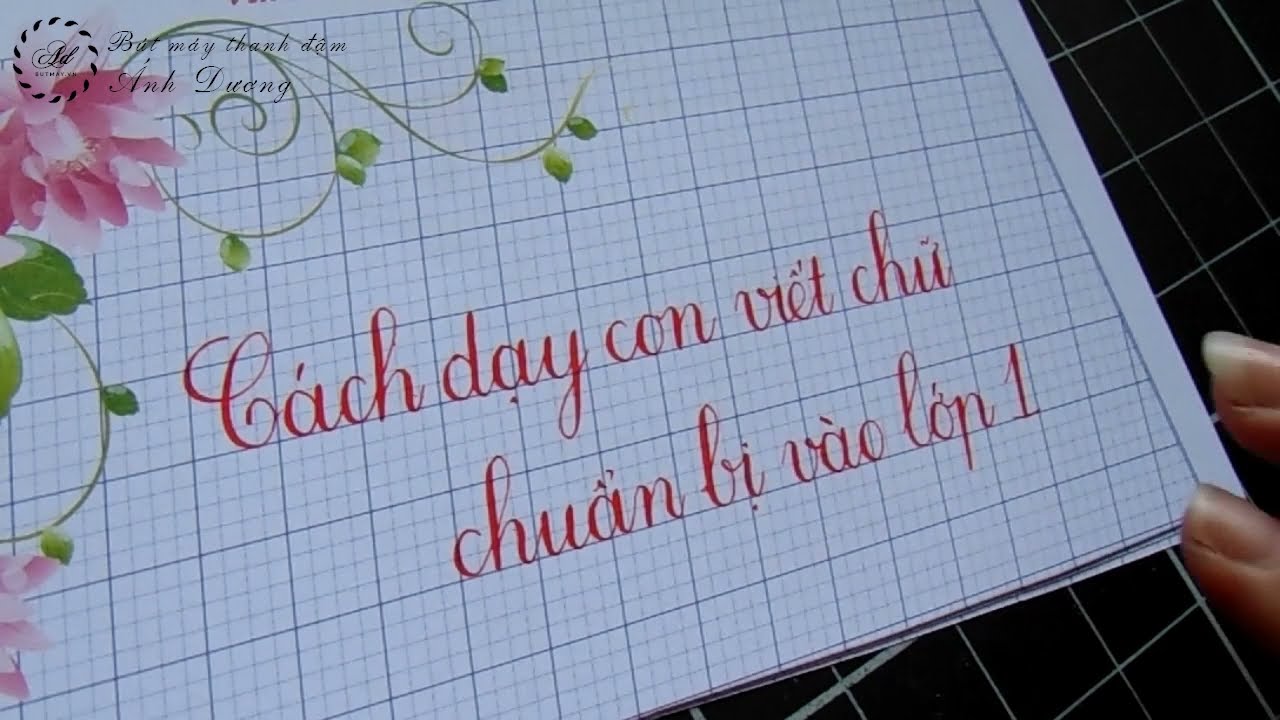 Ad
BUTMAY.VN
Bút máy thanh đậm
Ánh Dương
Cách dạy con viết chữ
chuẩn bị vào lớp 1